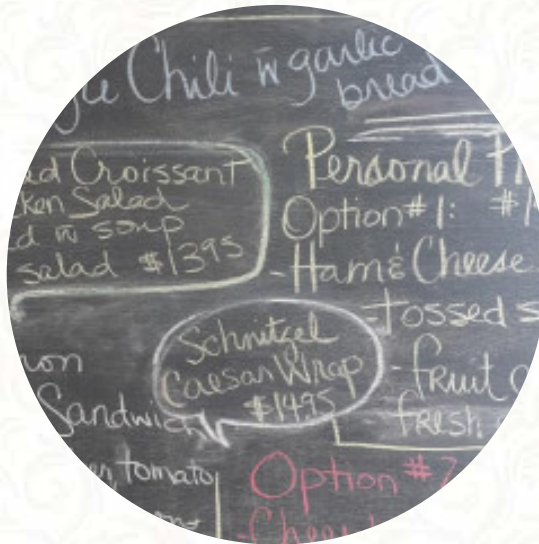 Chili w garlic
bread
Croissant
Salad
w soup
salad $13.95
Personal
Option #1:
- Ham & Cheese
- tossed
- fruit
fresh
Schnitzel
Caesar Wrap
$14.95
Sandwich
tomato
Option #2